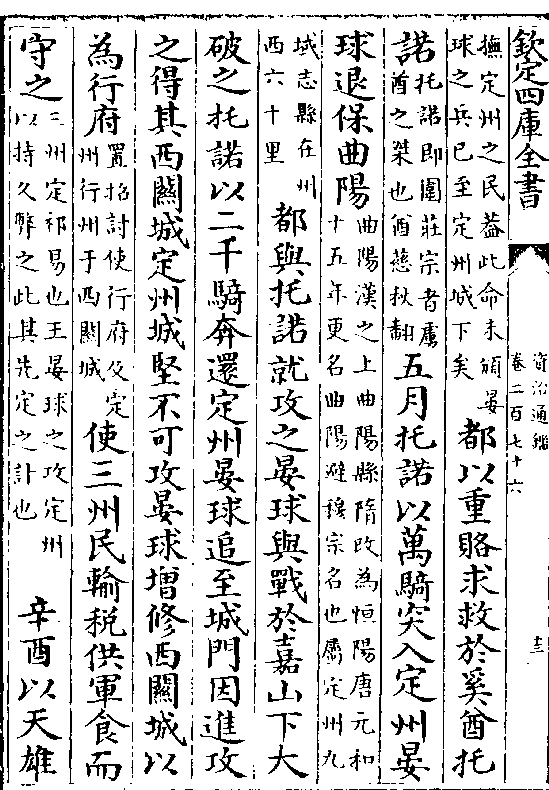 欽定四庫全書
資治通鑑
卷二百七十六
十三
撫定州之民葢此命未頒晏
球之兵已至定州城下矣
都以重賂求救於奚酋托
諾
托諾即圍莊宗者虜
酋之桀也酋慈秋翻
五月托諾以萬騎突入定州晏
球退保曲陽
曲陽漢之上曲陽縣隋改為恒陽唐元和
十五年更名曲陽避穆宗名也屬定州九
域志縣在州
西六十里
都與托諾就攻之晏球與戰於嘉山下大
破之托諾以二千騎奔還定州晏球追至城門因進攻
之得其西關城定州城堅不可攻晏球增修西關城以
為行府
置招討使行府及定
州行州于西關城
使三州民輸税供軍食而
守之
三州定祁易也王晏球之攻定州
以持久弊之此其先定之計也
辛酉以天雄